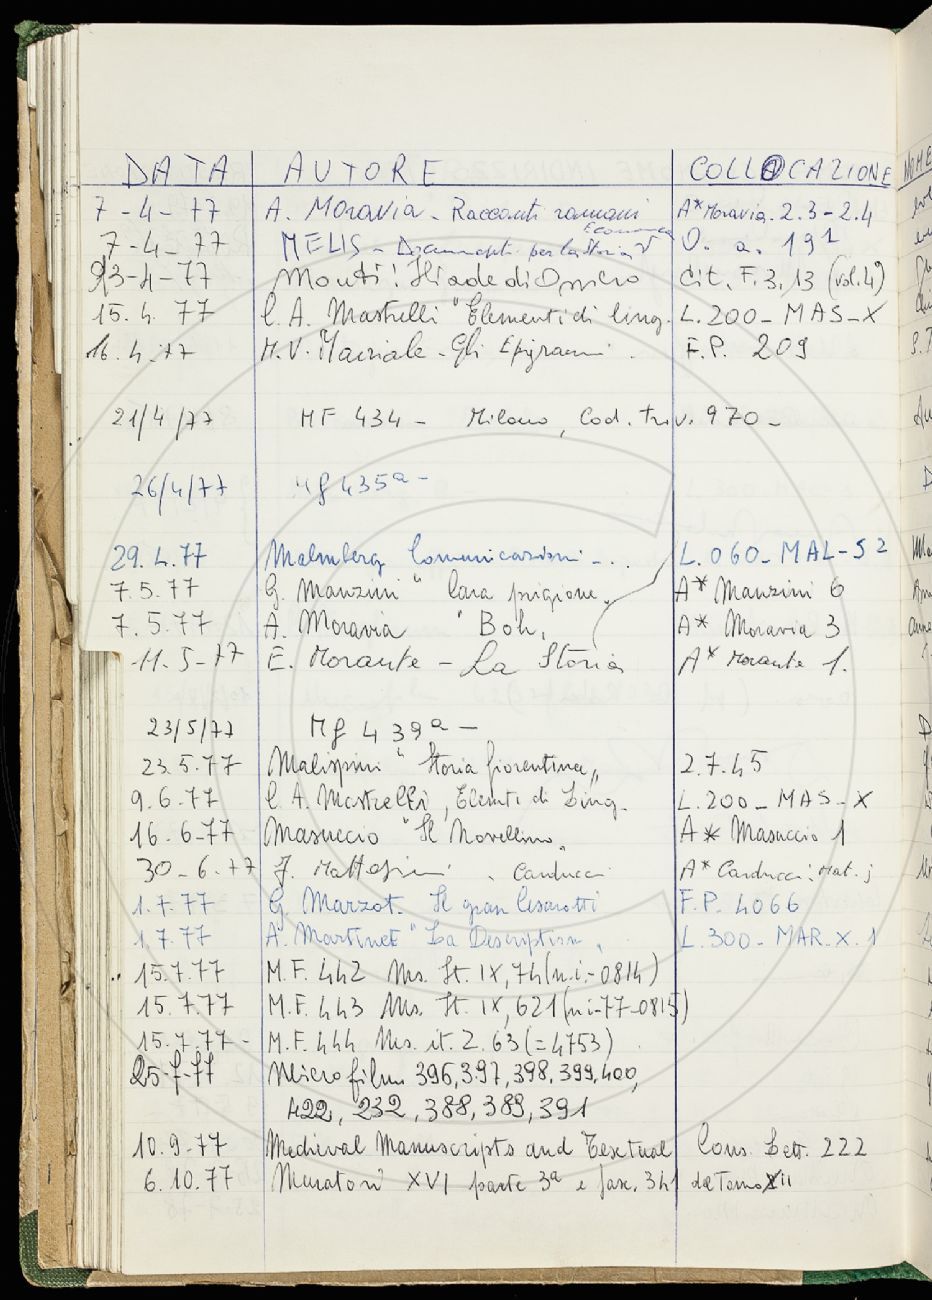 DATA AUTORE COLLOCAZIONE
7-4-77 A. Moravia - Racconti romani A* Moravia. 2.3-2.4
Economica
7-4-77 MELIS - Documenti per la storia O. a. 19¹
23-4-77 Monti: Iliade di Omero Cit. F. 3, 13 (vol. 4)
15. 4. 77 C. A. Mastrelli "Elementi di ling. L. 200 - MAS - X
16. 4. 77 M. V. Marziale - Gli Epigrammi. F.P. 209
21/4/77 MF 434 - Milano, Cod. Triv. 970 -
26/4/77 Mf 435a -
29. 4. 77 Malmberg Comunicazioni - .. L. 060 - MAL - S 2
7. 5. 77 G. Manzini " Cara prigione„ A* Manzini 6
7. 5. 77 A. Moravia " Boh, A* Moravia 3
11. 5-77 E. Morante - La Storia A* Morante 1.
23/5/77 Mf 439a -
23. 5. 77 Malispini " Storia fiorentina„ 2. 7. 45
9. 6. 77 C. A. Mastrelli, Elementi di Ling. L. 200 - MAS - X
16. 6-77 Masuccio "Il Novellino„ A* Masuccio 1
30 - 6. 77 Carducci A* Carducci: Mat. j
1. 7. 77 G. Marzot. Il gran Cesarotti F.P. 4066
1. 7. 77 A. Martinet "La Description, L. 300 - MAR. X. 1
15. 7. 77 M.F. 442 Ms. It. IX, 74 (n.i.-0814)
15. 7. 77 M.F. 443 Ms. It. IX, 621 (ni-77-0815)
15. 7. 77 - M.F. 444 Ms. it. Z. 63 (=4753)
25-7-77 Microfilm 396, 397, 398, 399, 400,
422, 232, 388, 389, 391
10. 9-77 Medieval Manuscripts and Textual Cons. Lett. 222
6. 10. 77 Muratori XVI parte 3ª e fasc. 341 del Tomo XII